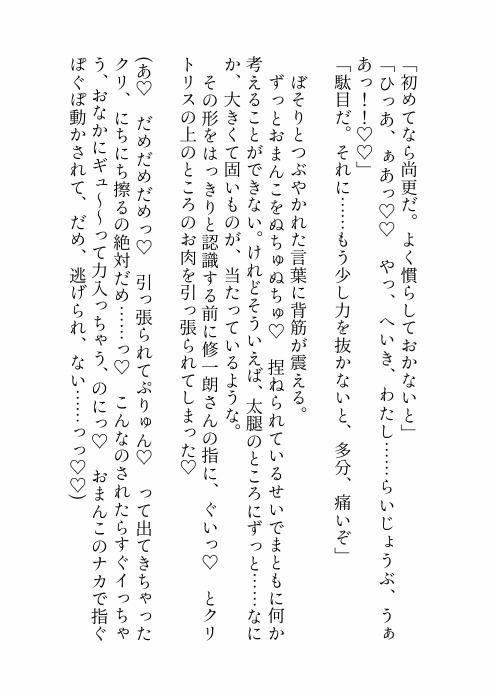 「初めてなら尚更だ。よく慣らしておかないと」
「ひっあ、ぁあっ♡♡　やっ、へいき、わたし……らいじょうぶ、うぁ
あっ！！♡♡」
「駄目だ。それに……もう少し力を抜かないと、多分、痛いぞ」
　ぼそりとつぶやかれた言葉に背筋が震える。
　ずっとおまんこをぬちゅぬちゅ♡　捏ねられているせいでまともに何か
考えることができない。けれどそういえば、太腿のところにずっと……なに
か、大きくて固いものが、当たっているような。
　その形をはっきりと認識する前に修一朗さんの指に、ぐいっ♡　とクリ
トリスの上のところのお肉を引っ張られてしまった♡
(あ♡　だめだめだめっ♡　引っ張られてぷりゅん♡　って出てきちゃった
クリ、にちにち擦るの絶対だめ……っ♡　こんなのされたらすぐイっちゃ
う、おなかにギュ～～って力入っちゃう、のにっ♡　おまんこのナカで指ぐ
ぽぐぽ動かされて、だめ、逃げられ、ない……っっ♡♡)